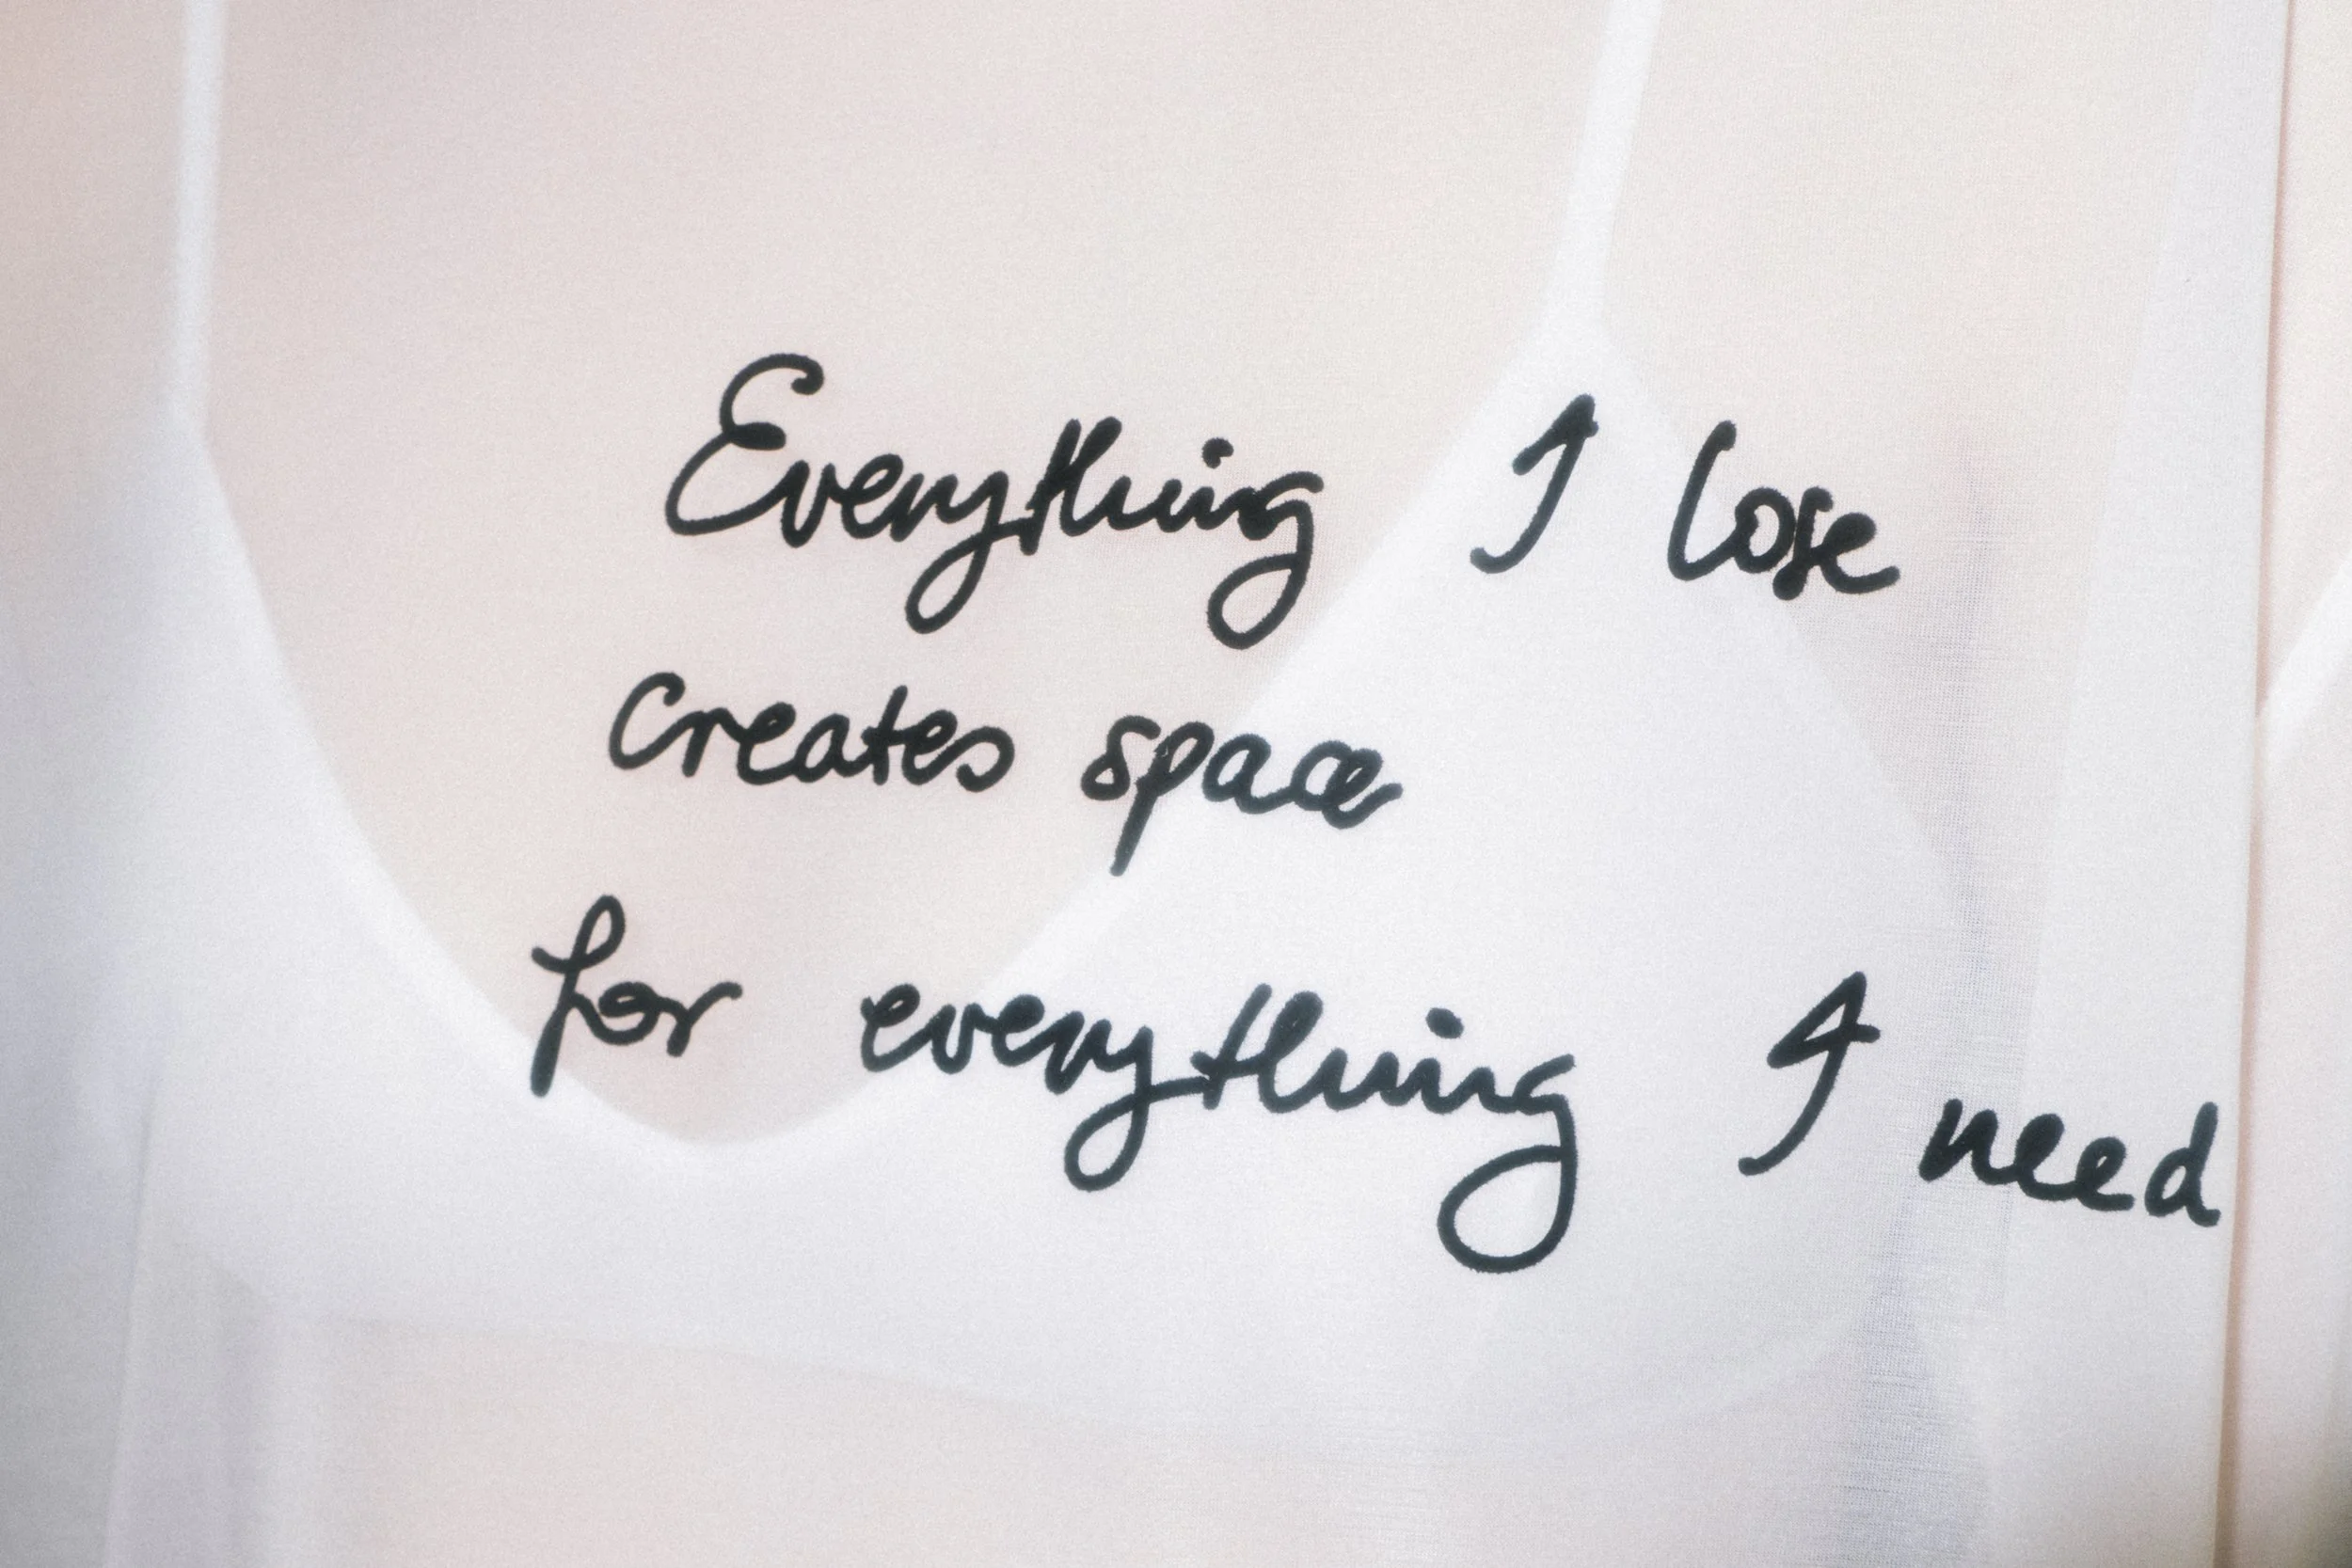 Everything I lose
creates space
for everything I need